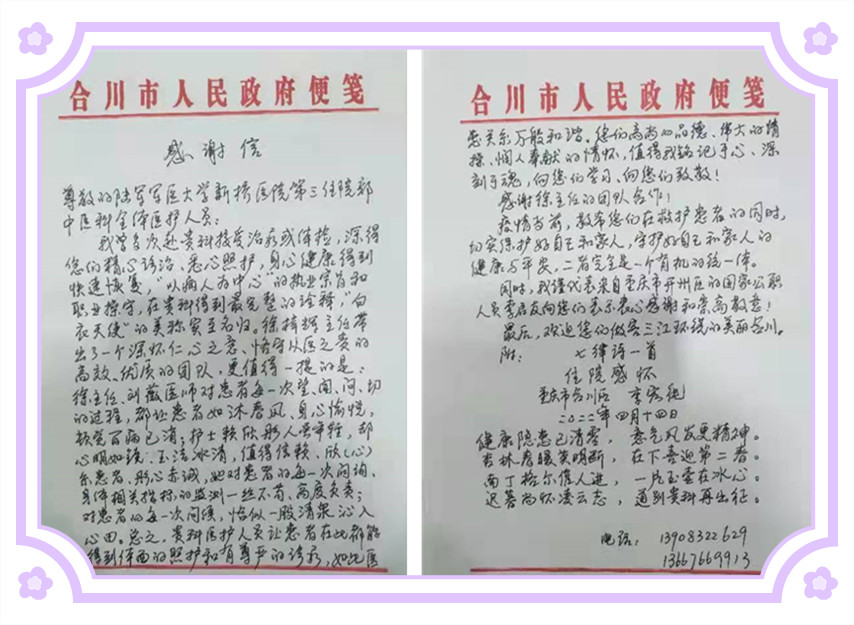 合川市人民政府便笺
感谢信
尊敬的陆军军医大学新桥医院第三住院部
中医科全体医护人员:
我曾多次赴贵科接受治疗或体检,深得
您们精心诊治、悉心照护,身心健康得到
快速恢复,“以病人为中心”的执业宗旨和
职业操守,在贵科得到最完整的诠释,“白
衣天使”的美称实至名归。徐 主任带
出了一个深怀仁心之意、恪守从医之责的
高效、优质的团队,更值得一提的是:
徐主任、刘薇医师对患者每一次望、闻、问、切
的过程,都让患者如沐春风、身心愉悦,
顿觉百病已消;护士 欣彤人 ,却
心明如镜、玉洁冰清,值得信赖、欣(心)
系患者、彤心赤诚,她对患者的每一次问询、
身体相关指标的监测一丝不苟、高度负责;
对患者的每一次问候,恰似一股清泉沁入
心田。总之,贵科医护人员让患者在此都能
得到体面的照护和有尊严的诊疗,如此医
合川市人民政府便笺
患关系万般和谐。您们高尚的品德、伟大的情
操、悯人奉献的情怀,值得我铭记于心、深
刻于魂,向您们学习、向您们致敬!
感谢徐主任的团队名作!
疫情当前,敬希您们在救护患者的同时,
切实保护好自己和家人,守护好自己和家人的
健康与平安,二者完全是一个有机的统一体。
同时,我谨代表来自重庆市开州区的国家公职
人员 友向您们表示衷心感谢和崇高敬意!
最后,欢迎您们做客三江环绕的美丽合川。
附: 七律诗一首
住院感怀
重庆市合川区 李
二〇二二年四月十四日
健康隐患已清零,意气风发更精神。
杏林春暖 明断,在下喜迎第二春。
南丁格尔伴人进,一片玉壶在冰心。
迟暮尚怀凌云志,道别贵科再出征。
电话: 13908322629
13667669913